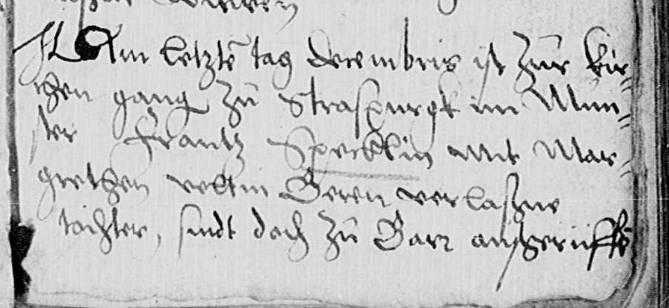 Am letzte tag decembris ist zur kir-
chen gang zu Straspurgk im Mun-
ster Frantz Specklin mit Mar-
grethen veltin Geren verlaszne
tochter, sindt doch zu Barr auszgerufft